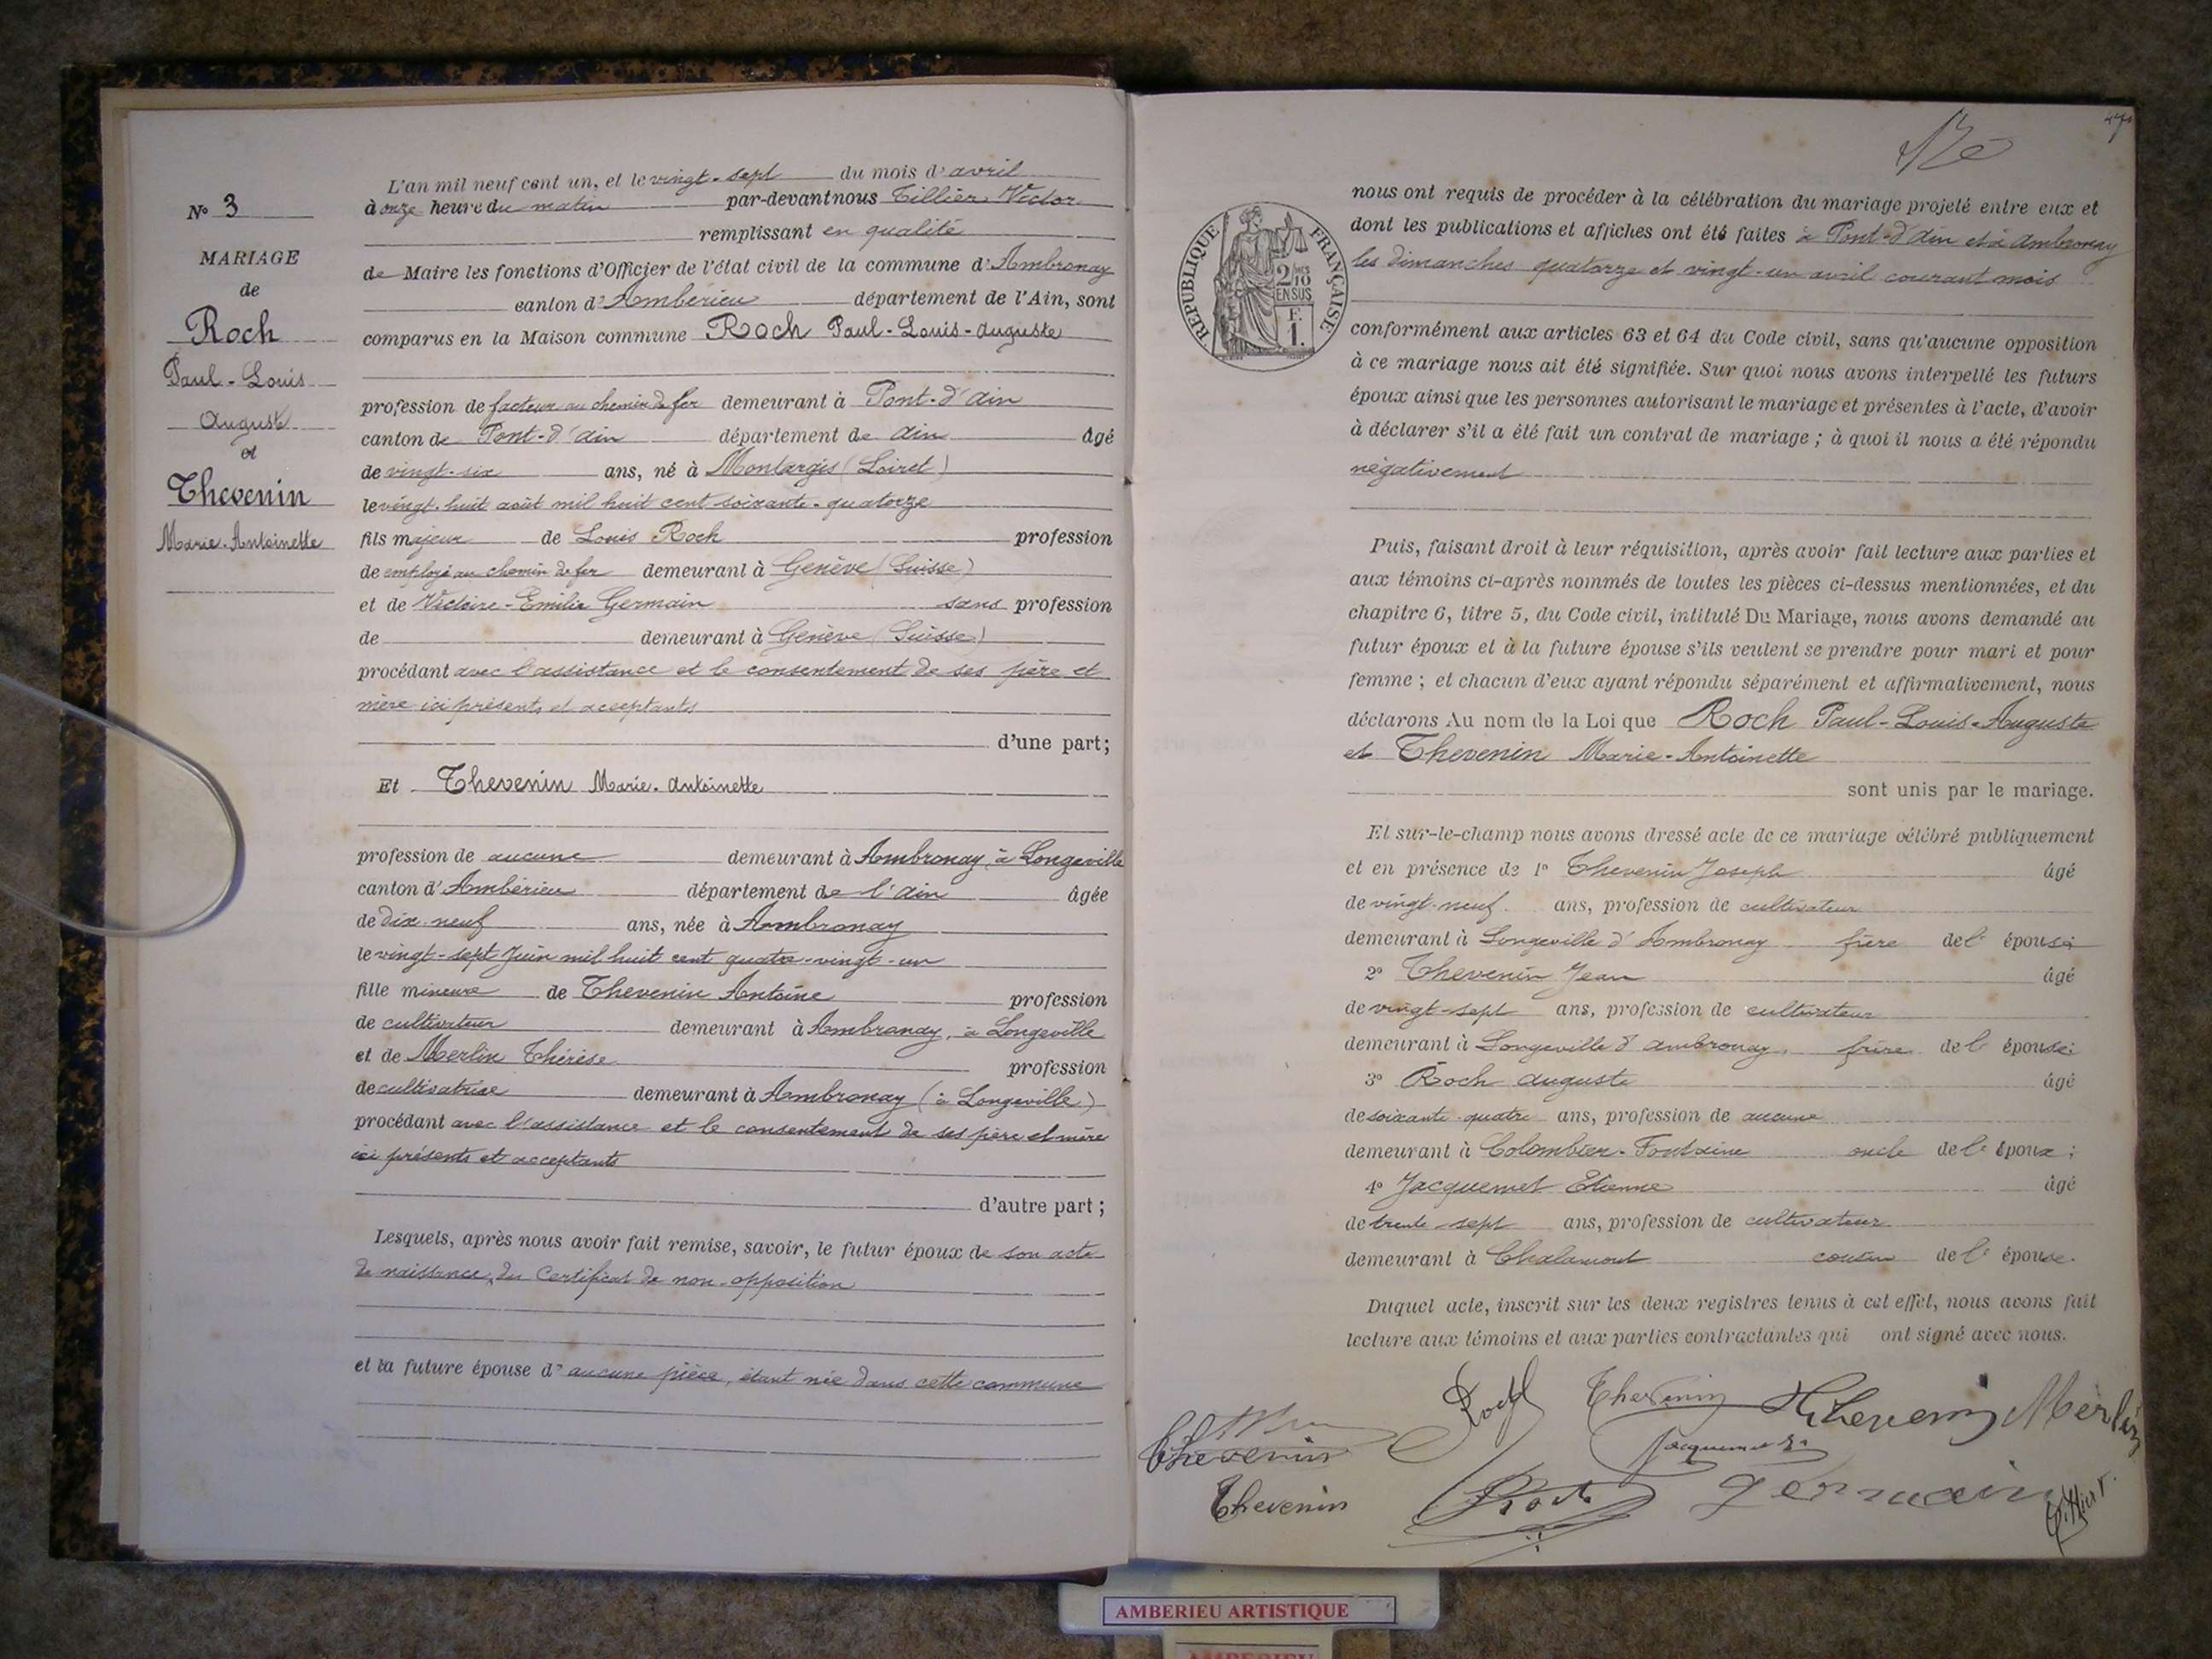 N° 3
MARIAGE
de
Roch
Paul-Louis
Auguste
et
Thevenin
Marie-Antoinette
L'an mil neuf cent un, et le vingt-sept du mois d'avril
à onze heure du matin par-devant nous Tillier Victor
remplissant en qualité
de Maire les fonctions d'Officier de l'état civil de la commune d'Ambronay
canton d'Ambérieu département de l'Ain, sont
comparus en la Maison commune Roch Paul-Louis-Auguste
profession de facteur au chemin de fer demeurant à Pont-d'Ain
canton de Pont-d'Ain département de Ain âgé
de vingt-six ans, né à Montargis (Loiret)
le vingt-huit août mil huit cent soixante-quatorze
fils majeur de Louis Roch profession
de employé au chemin de fer demeurant à Genève (Suisse)
et de Victoire-Emilie Germain sans profession
de demeurant à Genève (Suisse)
procédant avec l'assistance et le consentement de ses père et
mère ici présents et acceptants
d'une part;
Et Thevenin Marie-Antoinette
profession de aucune demeurant à Ambronay, à Longeville
canton d'Ambérieu département de l'Ain âgée
de dix-neuf ans, née à Ambronay
le vingt-sept Juin mil huit cent quatre-vingt-un
fille mineure de Thevenin Antoine profession
de cultivateur demeurant à Ambronay, à Longeville
et de Merlin Thérèse profession
de cultivatrice demeurant à Ambronay (à Longeville)
procédant avec l'assistance et le consentement de ses père et mère
ici présents et acceptants
d'autre part;
Lesquels, après nous avoir fait remise, savoir, le futur époux de son acte
de naissance, du Certificat de non-opposition
et la future épouse d'aucune pièce, étant née dans cette commune
47
nous ont requis de procéder à la célébration du mariage projeté entre eux et
dont les publications et affiches ont été faites à Pont-d'Ain et à Ambronay
les dimanches quatorze et vingt-un avril courant mois
RÉPUBLIQUE FRANÇAISE
2/10
EN SUS
F.
1.
conformément aux articles 63 et 64 du Code civil, sans qu'aucune opposition
à ce mariage nous ait été signifiée. Sur quoi nous avons interpellé les futurs
époux ainsi que les personnes autorisant le mariage et présentes à l'acte, d'avoir
à déclarer s'il a été fait un contrat de mariage; à quoi il nous a été répondu
négativement
Puis, faisant droit à leur réquisition, après avoir fait lecture aux parties et
aux témoins ci-après nommés de toutes les pièces ci-dessus mentionnées, et du
chapitre 6, titre 5, du Code civil, intitulé Du Mariage, nous avons demandé au
futur époux et à la future épouse s'ils veulent se prendre pour mari et pour
femme; et chacun d'eux ayant répondu séparément et affirmativement, nous
déclarons Au nom de la Loi que Roch Paul-Louis-Auguste
et Thevenin Marie-Antoinette
sont unis par le mariage.
Et sur-le-champ nous avons dressé acte de ce mariage célébré publiquement
et en présence de 1° Thevenin Joseph âgé
de vingt-neuf ans, profession de cultivateur
demeurant à Longeville d'Ambronay frère de l'épouse;
2° Thevenin Jean âgé
de vingt-sept ans, profession de cultivateur
demeurant à Longeville d'Ambronay, frère de l'épouse;
3° Roch Auguste âgé
de soixante-quatre ans, profession de aucune
demeurant à Colombier-Fontaine oncle de l'époux;
4° Jacquemet Etienne âgé
de trente-sept ans, profession de cultivateur
demeurant à Chalamont cousin de l'épouse.
Duquel acte, inscrit sur les deux registres tenus à cet effet, nous avons fait
lecture aux témoins et aux parties contractantes qui ont signé avec nous.
Roch Thevenin Thevenin Merlin
Thevenin Jacquemet
Thevenin Roch Germain Tillier
AMBERIEU ARTISTIQUE
AMBERIEU